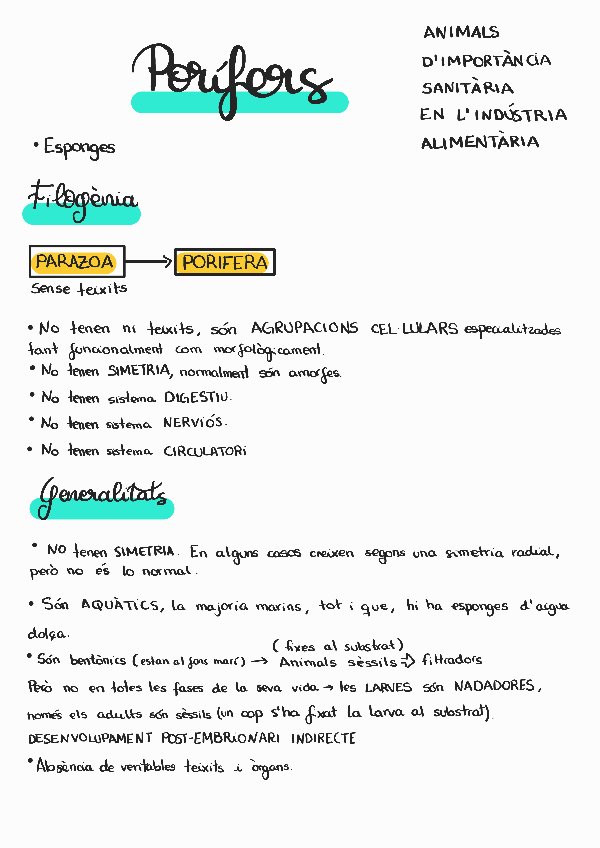 Porífers
ANIMALS
D'IMPORTÀNCIA
SANITÀRIA
EN L'INDÚSTRIA
ALIMENTÀRIA
• Esponges
Filogènia
PARAZOA → PORIFERA
Sense teixits
• No tenen ni teixits, són AGRUPACIONS CEL·LULARS especialitzades
tant funcionalment com morfològicament.
• No tenen SIMETRIA, normalment són amorfes.
• No tenen sistema DIGESTIU.
• No tenen sistema NERVIÓS.
• No tenen sistema CIRCULATORI
Generalitats
• NO tenen SIMETRIA. En alguns casos creixen segons una simetria radial,
però no és lo normal.
• Són AQUÀTICS, la majoria marins, tot i que, hi ha esponges d'aigua
dolça.
(fixes al substrat)
• Són bentònics (estan al fons marí) → Animals sèssils ⇒ filtradors
Però no en totes les fases de la seva vida → les LARVES són NADADORES,
només els adults són sèssils (un cop s'ha fixat la larva al substrat).
DESENVOLUPAMENT POST-EMBRIONARI INDIRECTE
• Absència de veritables teixits i òrgans.